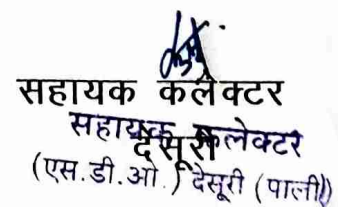 सहायक कलेक्टर
सहायक कलेक्टर
देसूरी
(एस.डी.ओ.) देसूरी (पाली)